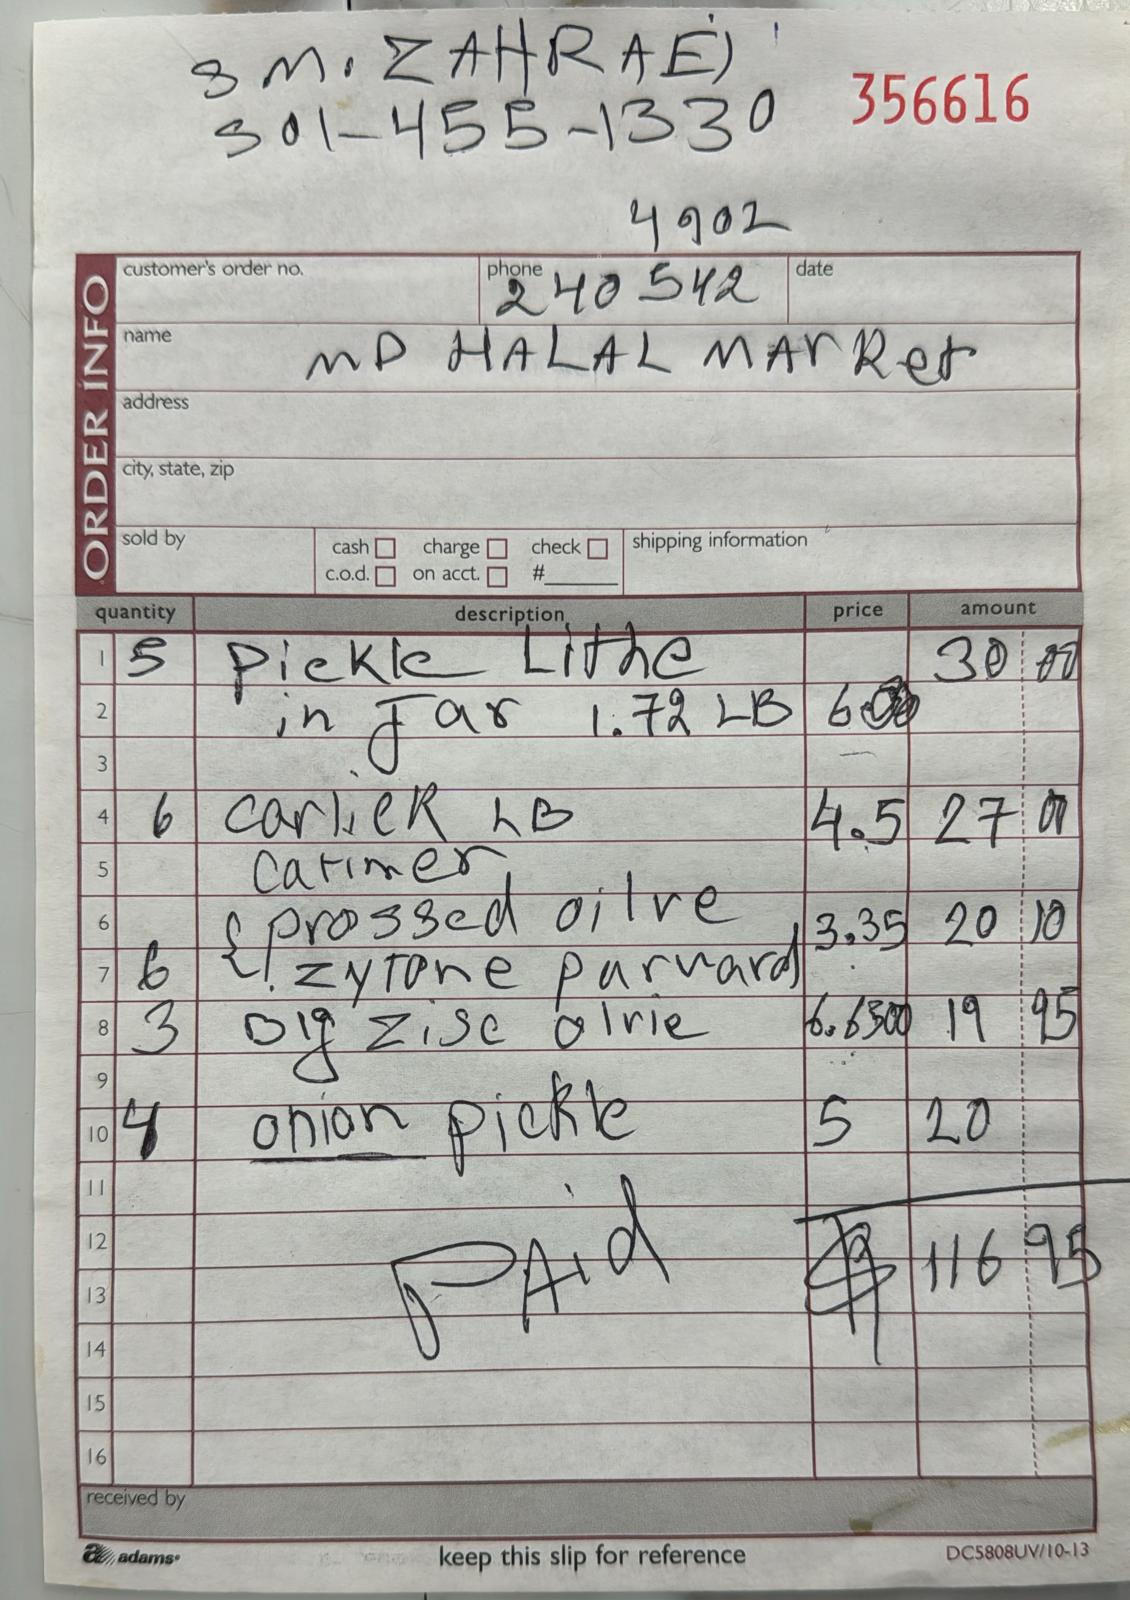 S M. ZAHRAEI
301-455-1330
356616
4902
ORDER INFO
customer's order no.
phone 240 542
date
name MD HALAL MArRet
address
city, state, zip
sold by
cash charge check
c.o.d. on acct. #
shipping information
quantity description price amount
1 5 Pickle Lithe 30 00
2 in Jar 1.72 LB 6.00
3
4 6 carlicR LB 4.5 27 00
5 carimer
6 prossed oilve 3.35 20 10
7 6 zytone parvard
8 3 Big Zise olvie 6.6500 19 95
9
10 4 onion pickle 5 20
11
12 $ 116 95
PAid
13
14
15
16
received by
adams
keep this slip for reference
DC5808UV/10-13